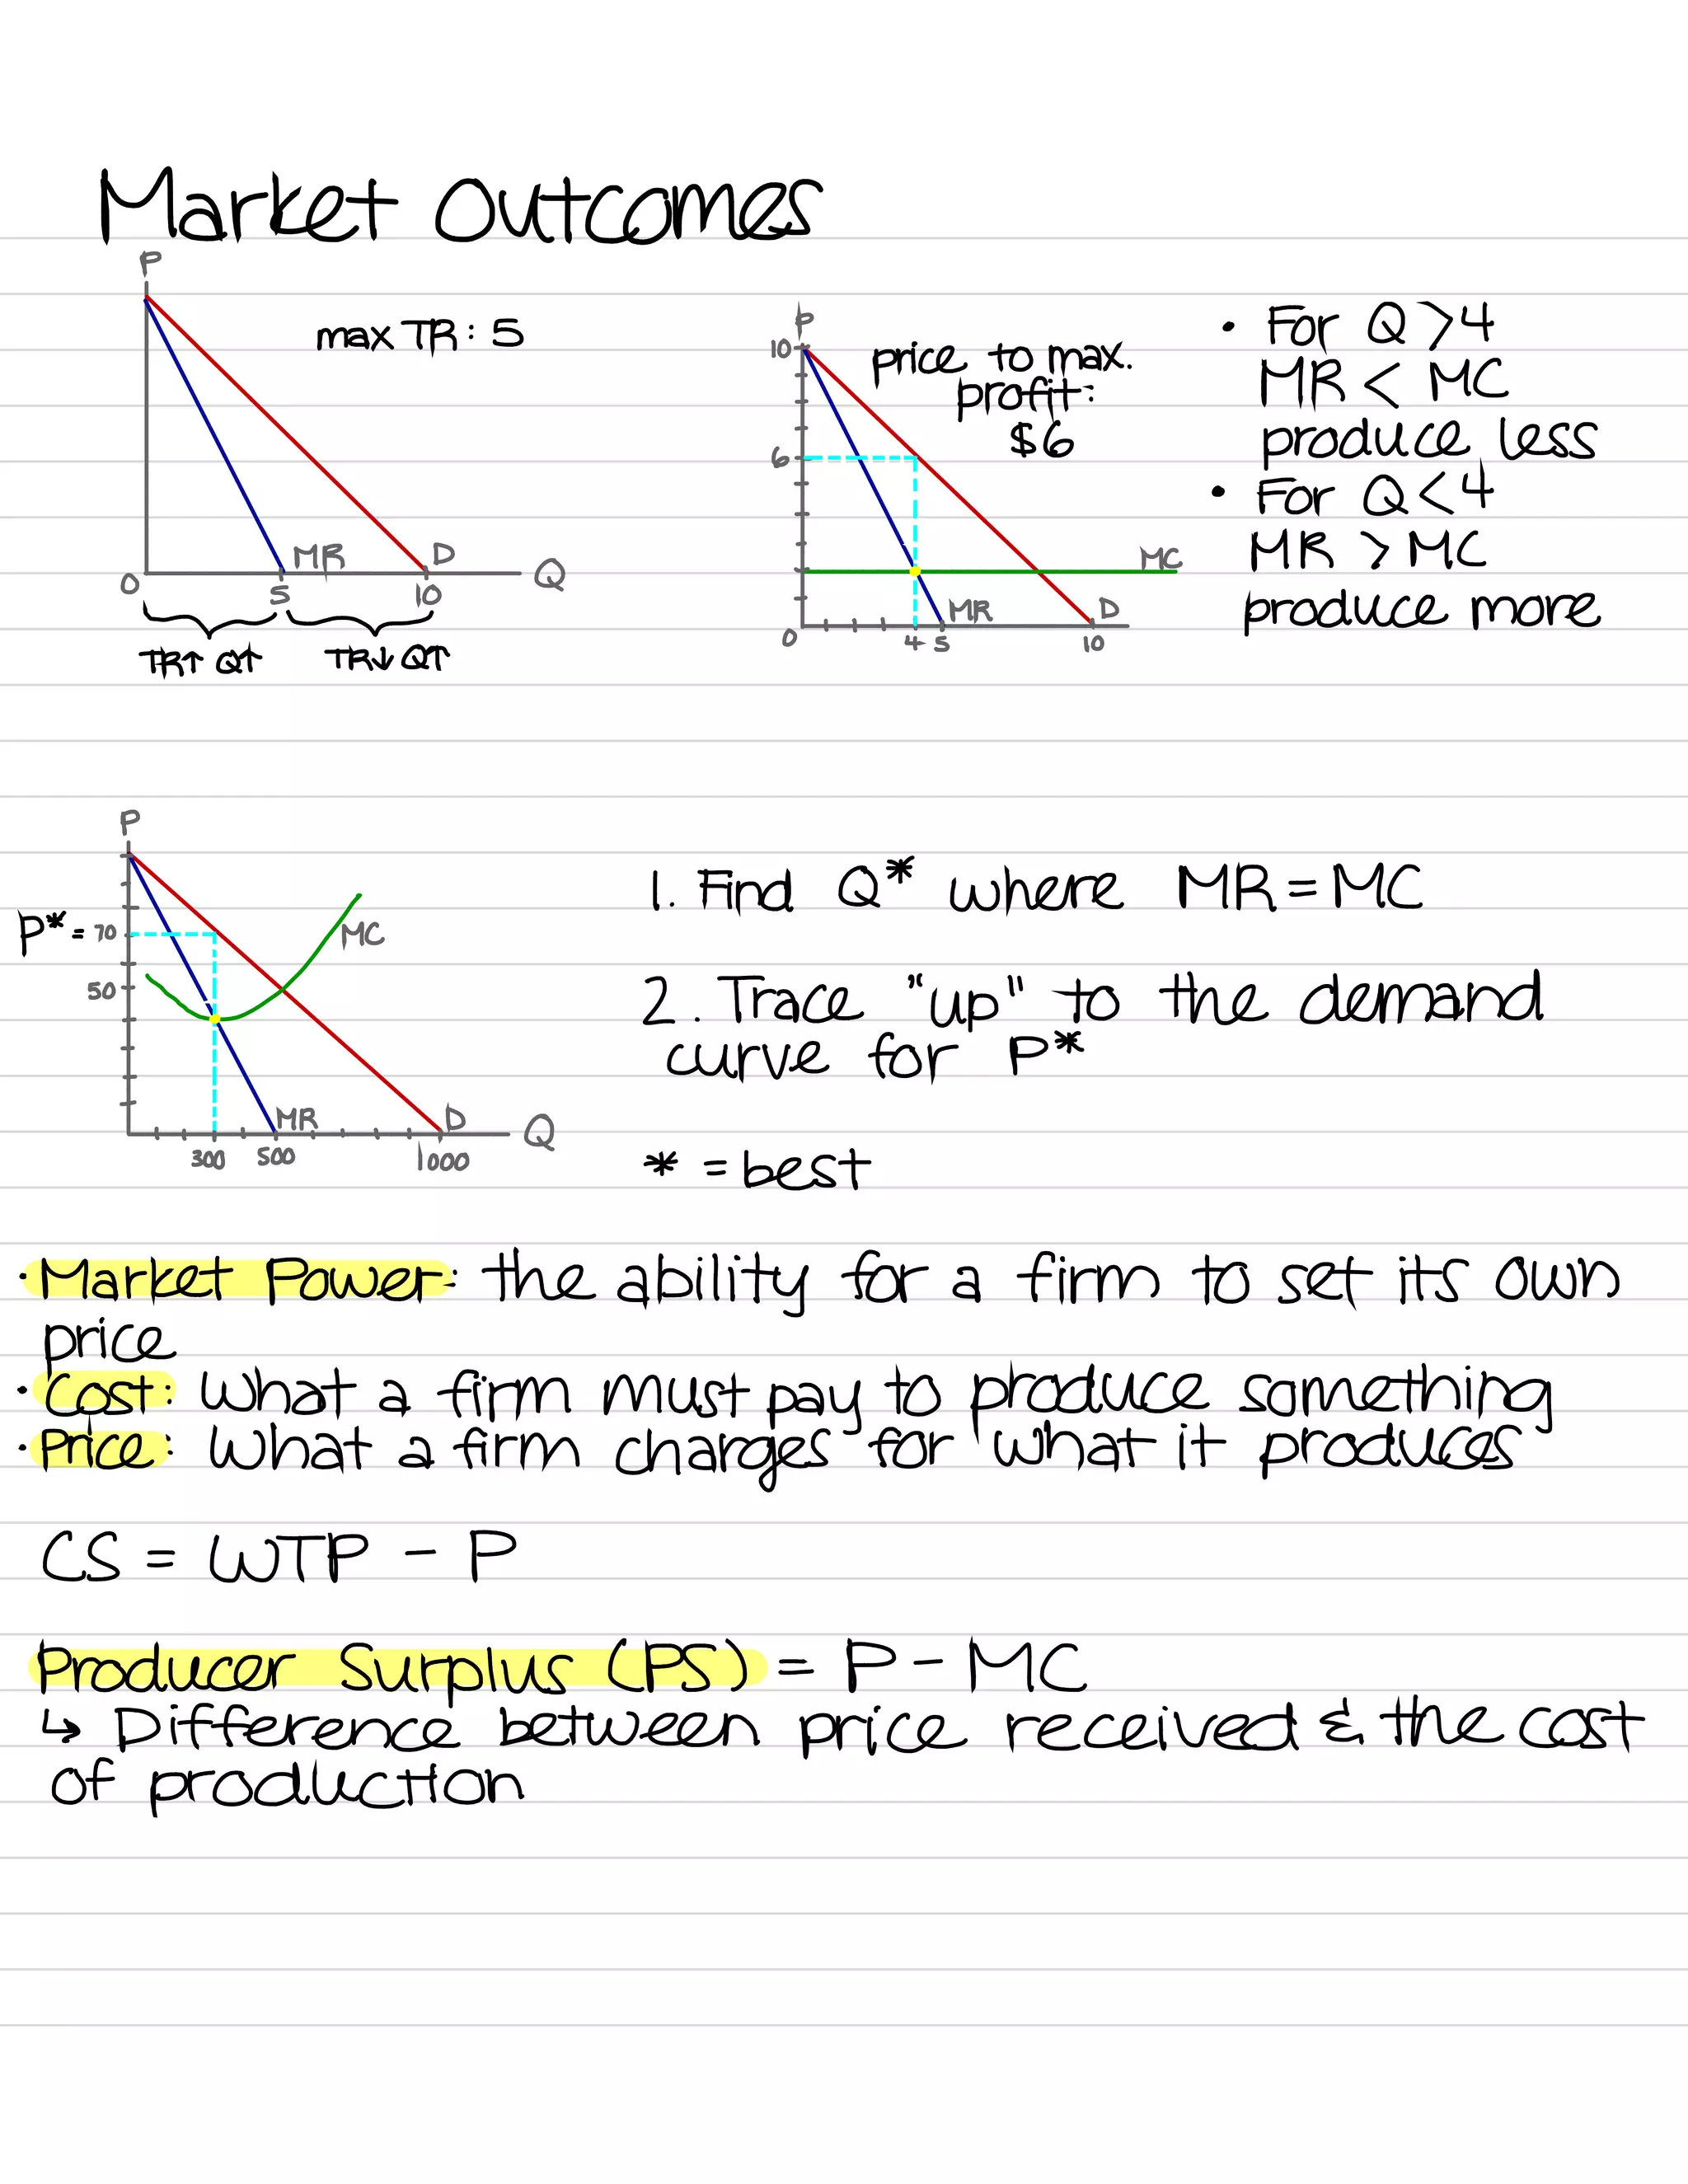 Market Outcomes
P
max TR: 5
MR
D
Q
0
5
10
TR↑ Q↑
TR↓ Q↑
P
10
price to max.
profit:
$6
6
MC
MR
D
0
4
5
10
• For Q>4
MR < MC
produce less
• For Q<4
MR > MC
produce more
P
P* = 70
MC
50
MR
D
Q
300
500
1000
1. Find Q* where MR = MC
2. Trace "up" to the demand
curve for P*
* = best
• Market Power: the ability for a firm to set its own
price
• Cost: What a firm must pay to produce something
• Price: What a firm charges for what it produces
CS = WTP - P
Producer Surplus (PS) = P - MC
↳ Difference between price received & the cost
of production